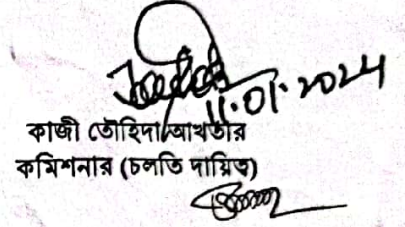 11.01.2024
কাজী তৌহিদা আখতার
কমিশনার (চলতি দায়িত্ব)